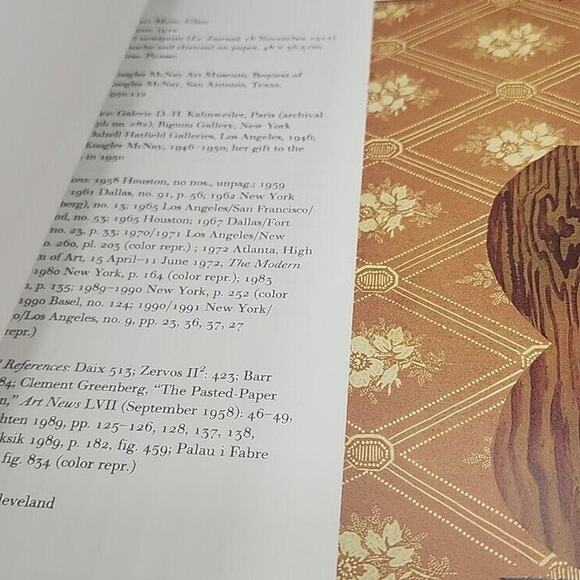 1912
(Le Journal, 18 November 1912)
and charcoal on paper, 48 x 36.5 cm
Picasso
McNay Art Museum, Bequest of
McNay, San Antonio, Texas,
Galerie D.-H. Kahnweiler, Paris (archival
no. 282); Bignou Gallery, New York
Dalzell Hatfield Galleries, Los Angeles, 1946;
Koogler McNay, 1946–1950; her gift to the
in 1950
1958 Houston, no nos., unpag.; 1959
1961 Dallas, no. 91, p. 56; 1962 New York
no. 13; 1965 Los Angeles/San Francisco/
no. 53; 1965 Houston; 1967 Dallas/Fort
no. 23, p. 33; 1970/1971 Los Angeles/New
260, pl. 203 (color repr.) ; 1972 Atlanta, High
of Art, 15 April–11 June 1972, The Modern
1980 New York, p. 164 (color repr.); 1983
p. 135; 1989–1990 New York, p. 252 (color
1990 Basel, no. 124; 1990/1991 New York/
o/Los Angeles, no. 9, pp. 23, 36, 37, 27
repr.)
References: Daix 513; Zervos II²: 423; Barr
84; Clement Greenberg, “The Pasted-Paper
n,” Art News LVII (September 1958): 46–49,
hten 1989, pp. 125–126, 128, 137, 138,
ksik 1989, p. 182, fig. 459; Palau i Fabre
fig. 834 (color repr.)
leveland